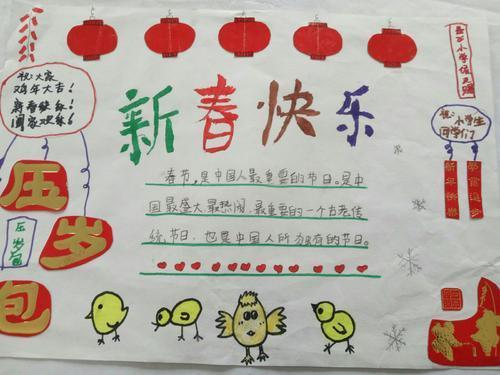 祝大家
鸡年大吉！
新春快乐！
阖家欢乐！
新春快乐
祝：小学生
同学们
春节，是中国人最重要的节日。是中
国最盛大、最热闹、最重要的一个古老传
统节日，也是中国人所独有的节日。
新年快乐
学习进步
压
岁
包
压岁包